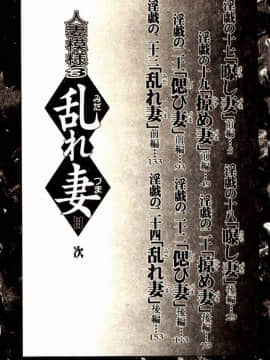 淫戯の十七「曝し妻」前編…
淫戯の十八「曝し妻」後編…
淫戯の十九「掠め妻」前編…
淫戯の二十「掠め妻」後編…
淫戯の二十一「偲び妻」前編…93
淫戯の二十二「偲び妻」後編…113
淫戯の二十三「乱れ妻」前編…133
淫戯の二十四「乱れ妻」後編…153
人妻模様3
乱れ妻
みだ
つま
目次